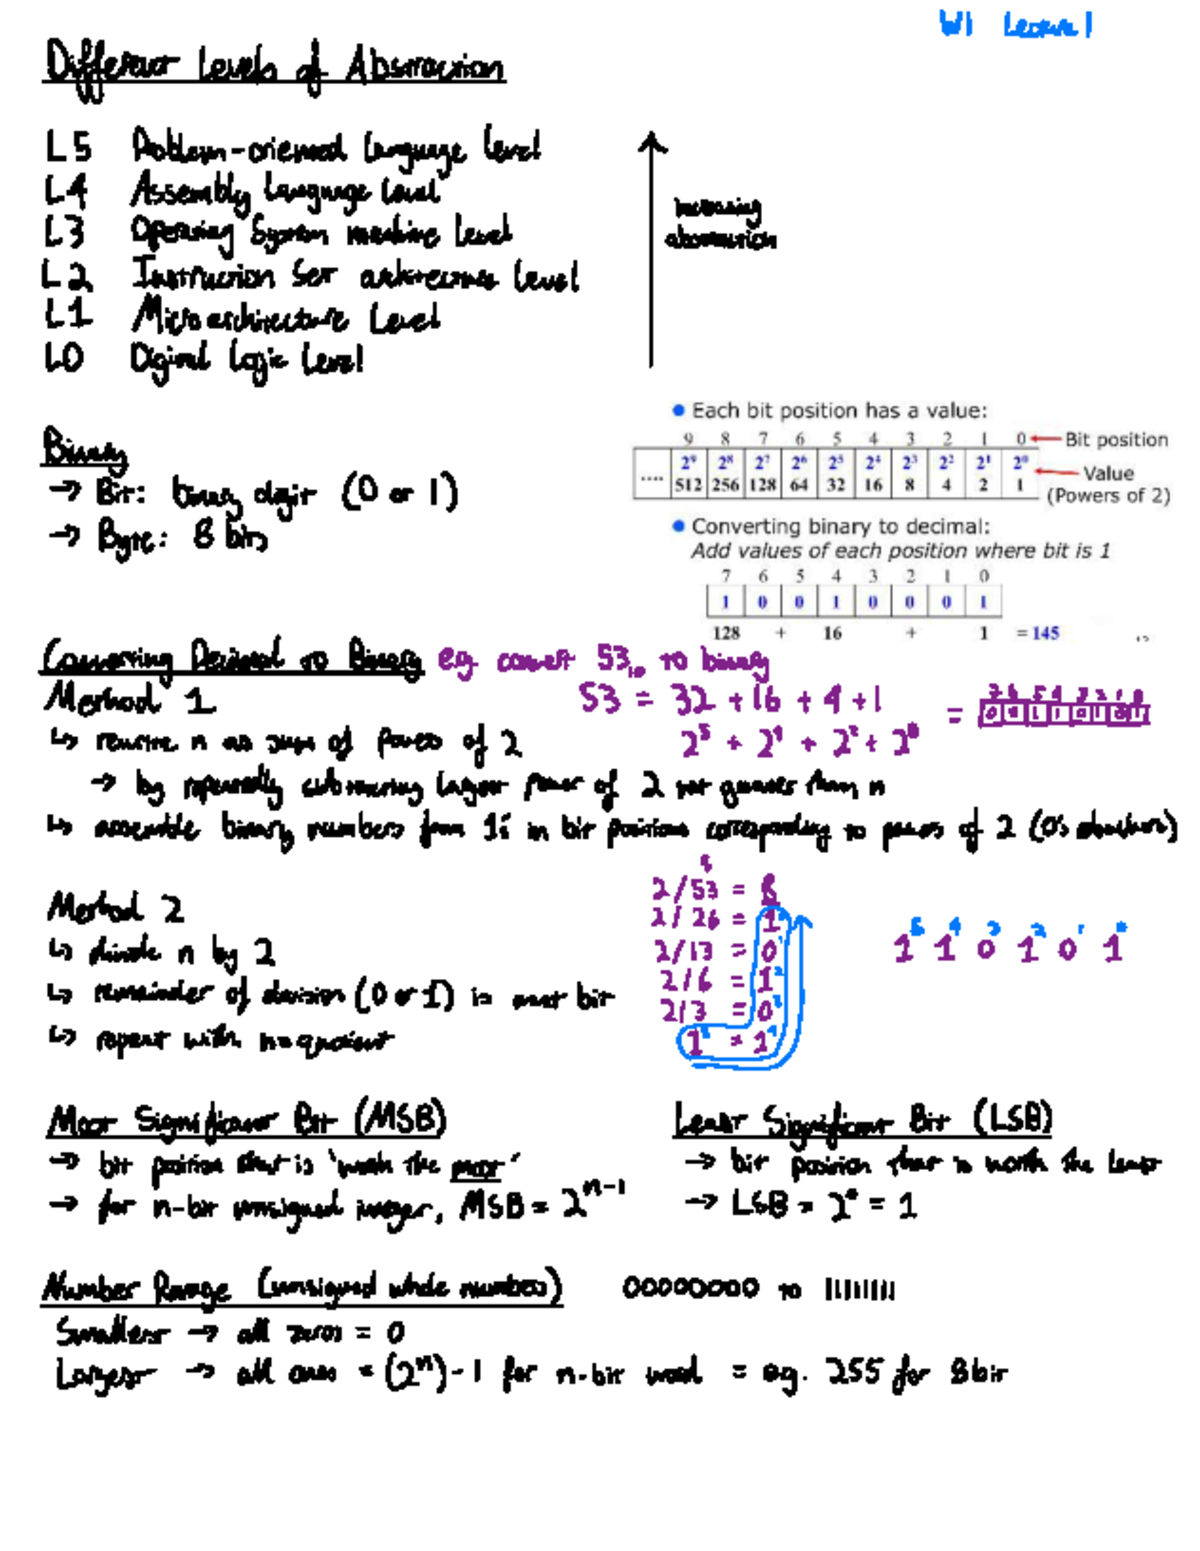 W1 Lecture 1
Different Levels of Abstraction
L5 Problem-oriented language level
L4 Assembly language level
L3 Operating System machine level
L2 Instruction Set architecture level
L1 Microarchitecture Level
L0 Digital Logic Level
increasing
abstraction
Binary
→ Bit: binary digit (0 or 1)
→ Byte: 8 bits
● Each bit position has a value:
9 8 7 6 5 4 3 2 1 0 Bit position
.... 2⁹ 2⁸ 2⁷ 2⁶ 2⁵ 2⁴ 2³ 2² 2¹ 2⁰ Value
512 256 128 64 32 16 8 4 2 1 (Powers of 2)
● Converting binary to decimal:
Add values of each position where bit is 1
7 6 5 4 3 2 1 0
1 0 0 1 0 0 0 1
128 + 16 + 1 = 145
Converting Decimal to Binary eg convert 53₁₀ to binary
Method 1
53 = 32 + 16 + 4 + 1
2⁵ + 2⁴ + 2² + 2⁰
= 7 6 5 4 3 2 1 0
0 0 1 1 0 1 0 1
↳ rewrite n as sum of powers of 2
→ by repeatedly subtracting largest power of 2 not greater than n
↳ assemble binary numbers from 1s in bit positions corresponding to powers of 2 (0's elsewhere)
Method 2
↳ divide n by 2
↳ remainder of division (0 or 1) is next bit
↳ repeat with n=quotient
2/53 =
2/26 = 1⁰
2/13 = 0¹
2/6 = 1²
2/3 = 0³
1⁵ = 1⁴
1⁵ 1⁴ 0³ 1² 0¹ 1⁰
Most Significant Bit (MSB)
→ bit position that is 'worth the most'
→ for n-bit unsigned integer, MSB = 2ⁿ⁻¹
Least Significant Bit (LSB)
→ bit position that is worth the least
→ LSB = 2⁰ = 1
Number Range (unsigned whole numbers) 00000000 to 11111111
Smallest → all zeros = 0
Largest → all ones = (2ⁿ)-1 for n-bit word = eg. 255 for 8bit